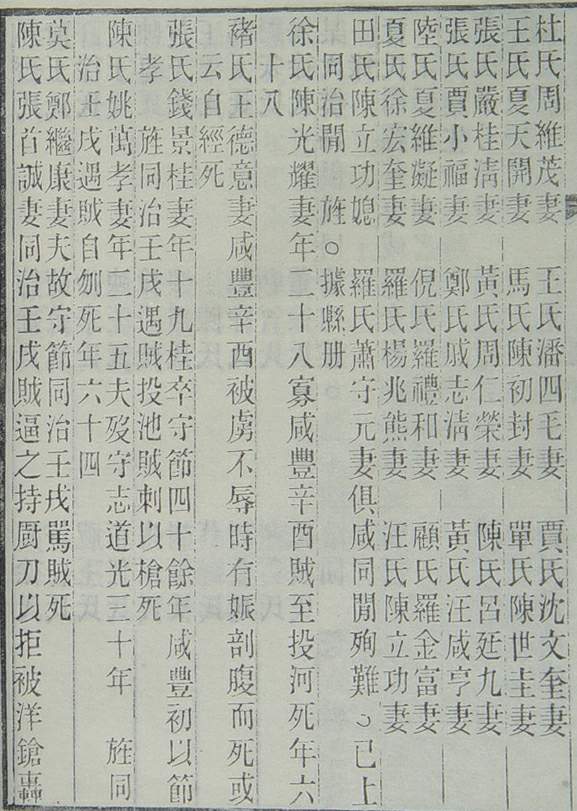 杜氏周維茂妻　王氏潘四毛妻　賈氏沈文奎妻
王氏夏天開妻　馬氏陳初封妻　單氏陳世圭妻
張氏嚴桂淸妻　黃氏周仁榮妻　陳氏呂廷九妻
張氏賈小福妻　鄭氏戚志淸妻　黃氏汪咸亨妻
陸氏夏維凝妻　倪氏羅禮和妻　顧氏羅金富妻
夏氏徐宏奎妻　羅氏楊兆熊妻　汪氏陳立功妻
田氏陳立功媳　羅氏蕭守元妻俱咸同閒殉難　已上
同治閒　旌○據縣册
徐氏陳光耀妻年二十八寡咸豐辛酉賊至投河死年六
十八
褚氏王德意妻咸豐辛酉被虜不辱時有娠剖腹而死或
云自經死
張氏錢景桂妻年十九桂卒守節四十餘年咸豐初以節
孝　旌同治壬戌遇賊投池賊刺以槍死
陳氏姚萬孝妻年二十五夫歿守志道光三十年　旌同
治壬戌遇賊自刎死年六十四
莫氏鄭繼康妻夫故守節同治壬戌罵賊死
陳氏張首誠妻同治壬戌賊逼之持厨刀以拒被洋鎗轟